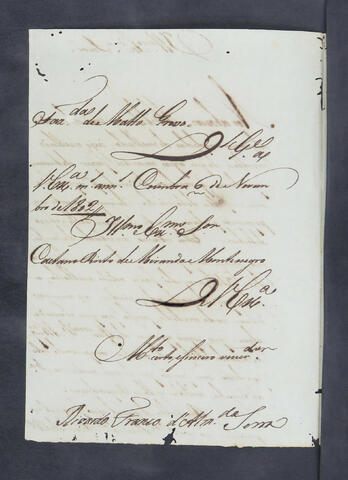 Faz.das de Matto Groso.
D.s G.e a
V. Ex.a m.s ann.s Coimbra 6 de Novem
bro de 1802//
Illmo Ex.mo Snr
Caetano Pinto de Miranda Montenegro
D V. Ex.a
M.to certo, e sincero vener.dor
Ricardo Franco d'Alm.da Serra